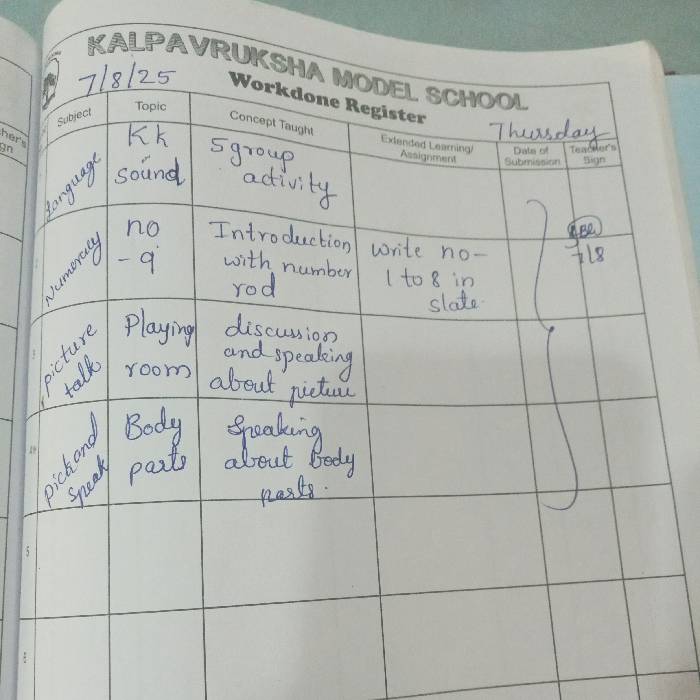 KALPAVRUKSHA MODEL SCHOOL
7/8/25
Workdone Register
Thursday
Subject
Topic
Concept Taught
Extended Learning/
Assignment
Date of
Submission
Teacher's
Sign
her's
gn
Language
Kk
sound
5 group
activity
Numeracy
no
- 9
Introduction
with number
rod
Write no-
1 to 8 in
slate.
7/8
3
picture
talk
Playing
room
discussion
and speaking
about picture
pick and
speak
Body
parts
Speaking
about body
parts.
5
6